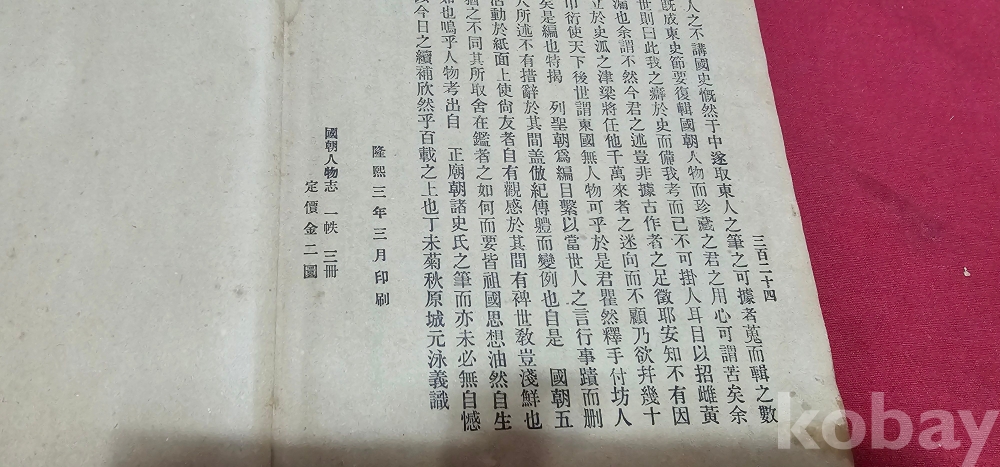 三百二十四
人之不講國史慨然于中遂取東人之筆之可據者蒐而輯之數
既成東史節要復輯國朝人物而珍藏之君之用心可謂苦矣余
世則曰此我之癖於史而備我考而已不可掛人耳目以招雌黃
漏也余謂不然今君之述豈非據古作者之足徵耶安知不有因
立於史泒之津梁將任他千萬來者之迷向而不顧乃欲幷幾十
印衍使天下後世謂東國無人物可乎於是君瞿然釋手付坊人
矣是編也特揭 列聖朝爲編目繫以當世人之言行事蹟而删
人所述不有措辭於其間盖倣紀傳體而變例也自是 國朝五
活動於紙面上使尙友者自有觀感於其間有裨世敎豈淺鮮也
猶之不同其所取舍在鑑者之如何而要皆祖國思想油然自生
如也嗚乎人物考出自 正廟朝諸史氏之筆而亦未必無自憾
今日之續補欣然乎百載之上也丁未菊秋原城元泳義識
隆熙三年三月印刷
國朝人物志 一帙 三冊
定價金二圜
kobay